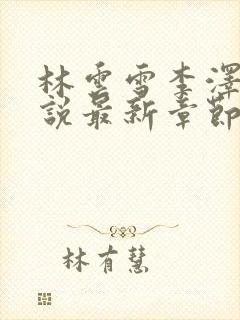 林雲雪李澤
說最新章節
林有慧